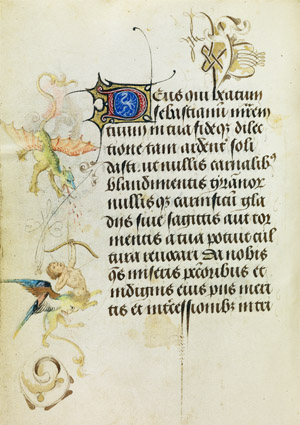 Deus qui beatum
sebastianū mr̄em
tuum in tua fide q̄ dilec
tione tam ardent̄ soli
dasti. ut nullis carnalibꝰ
blandimentis tyrānor̄
nullis q̄ carnificū gla
dijs siue sagittis aut tor
mentis a tua potuit cul
tura reuocari Da nobis
q̄s miseris pctoribus et
indignis eius pijs meri
tis et intercessionibꝫ in tri